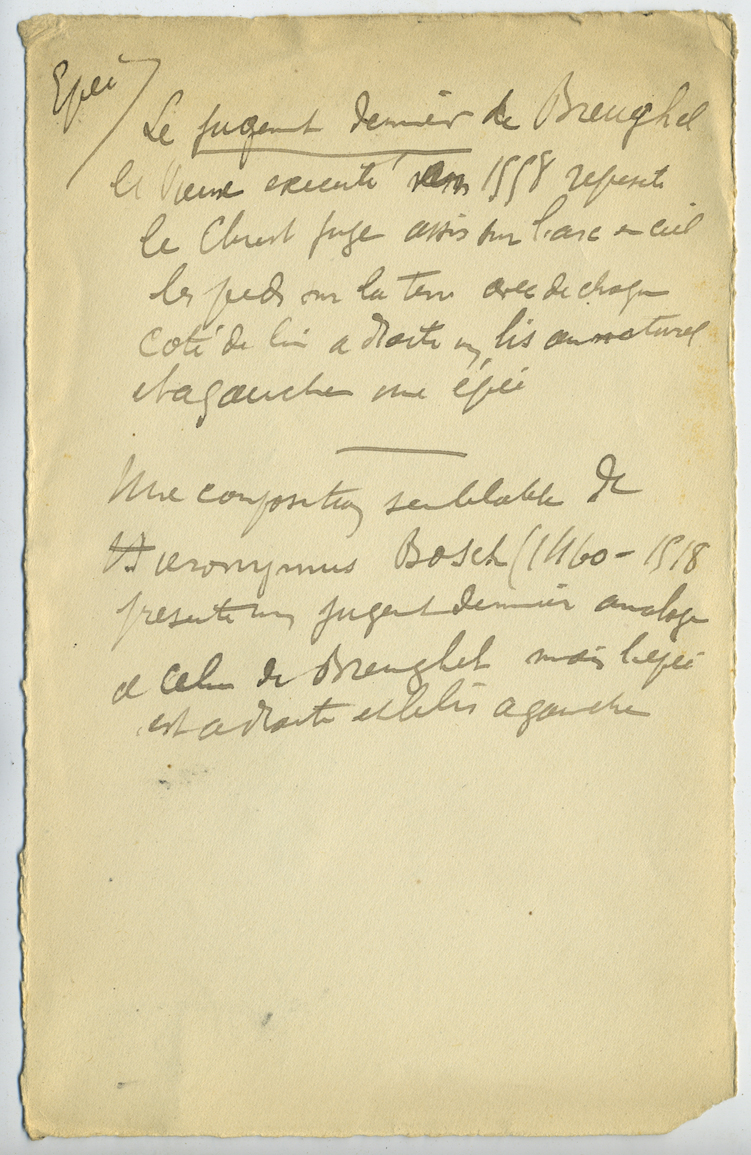 Epée
Le Jugement dernier de Breughel
le Vieux executé vers 1558 represente
le Christ juge assis sur l'arc en ciel
les pieds sur la terre avec de chaque
coté de lui a droite un lis au naturel
et a gauche une épée
Une composition semblable de
Hieronymus Bosch (1460-1518
presente un jugement dernier analogue
a celui de Breughel mais l'epée
est a droite et le lis a gauche